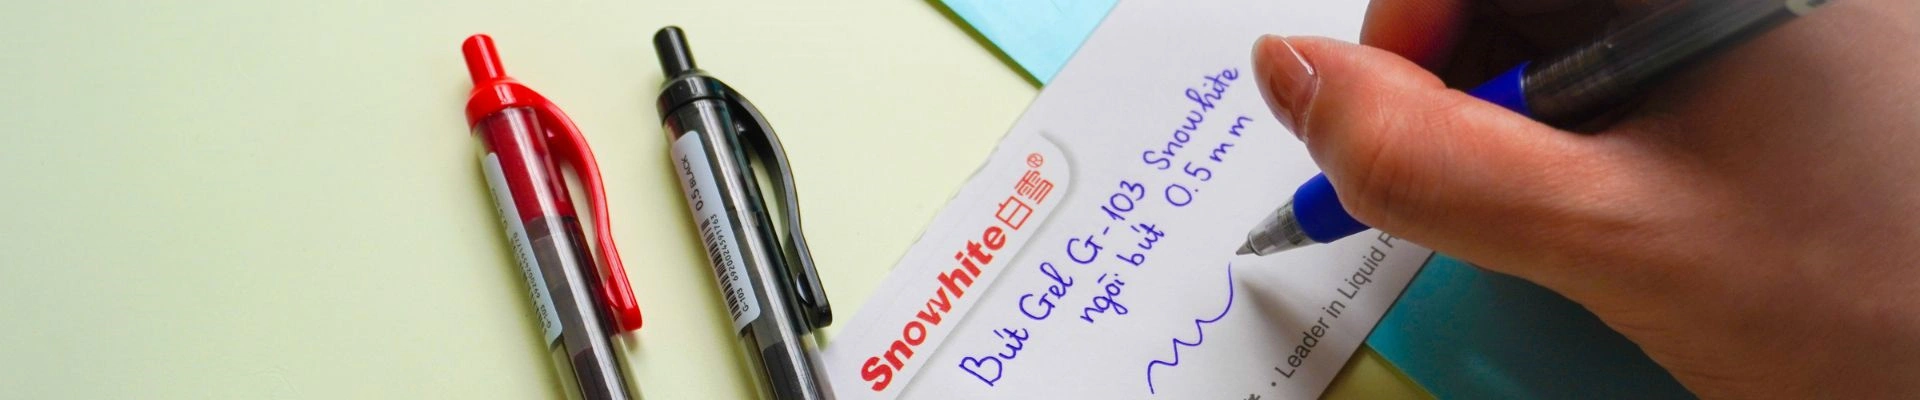 0.5 BLACK
G-103 6920024591763
Snowhite白雪®
Bút Gel G-103 Snowhite
ngòi bút 0.5 mm
• Leader in Liquid